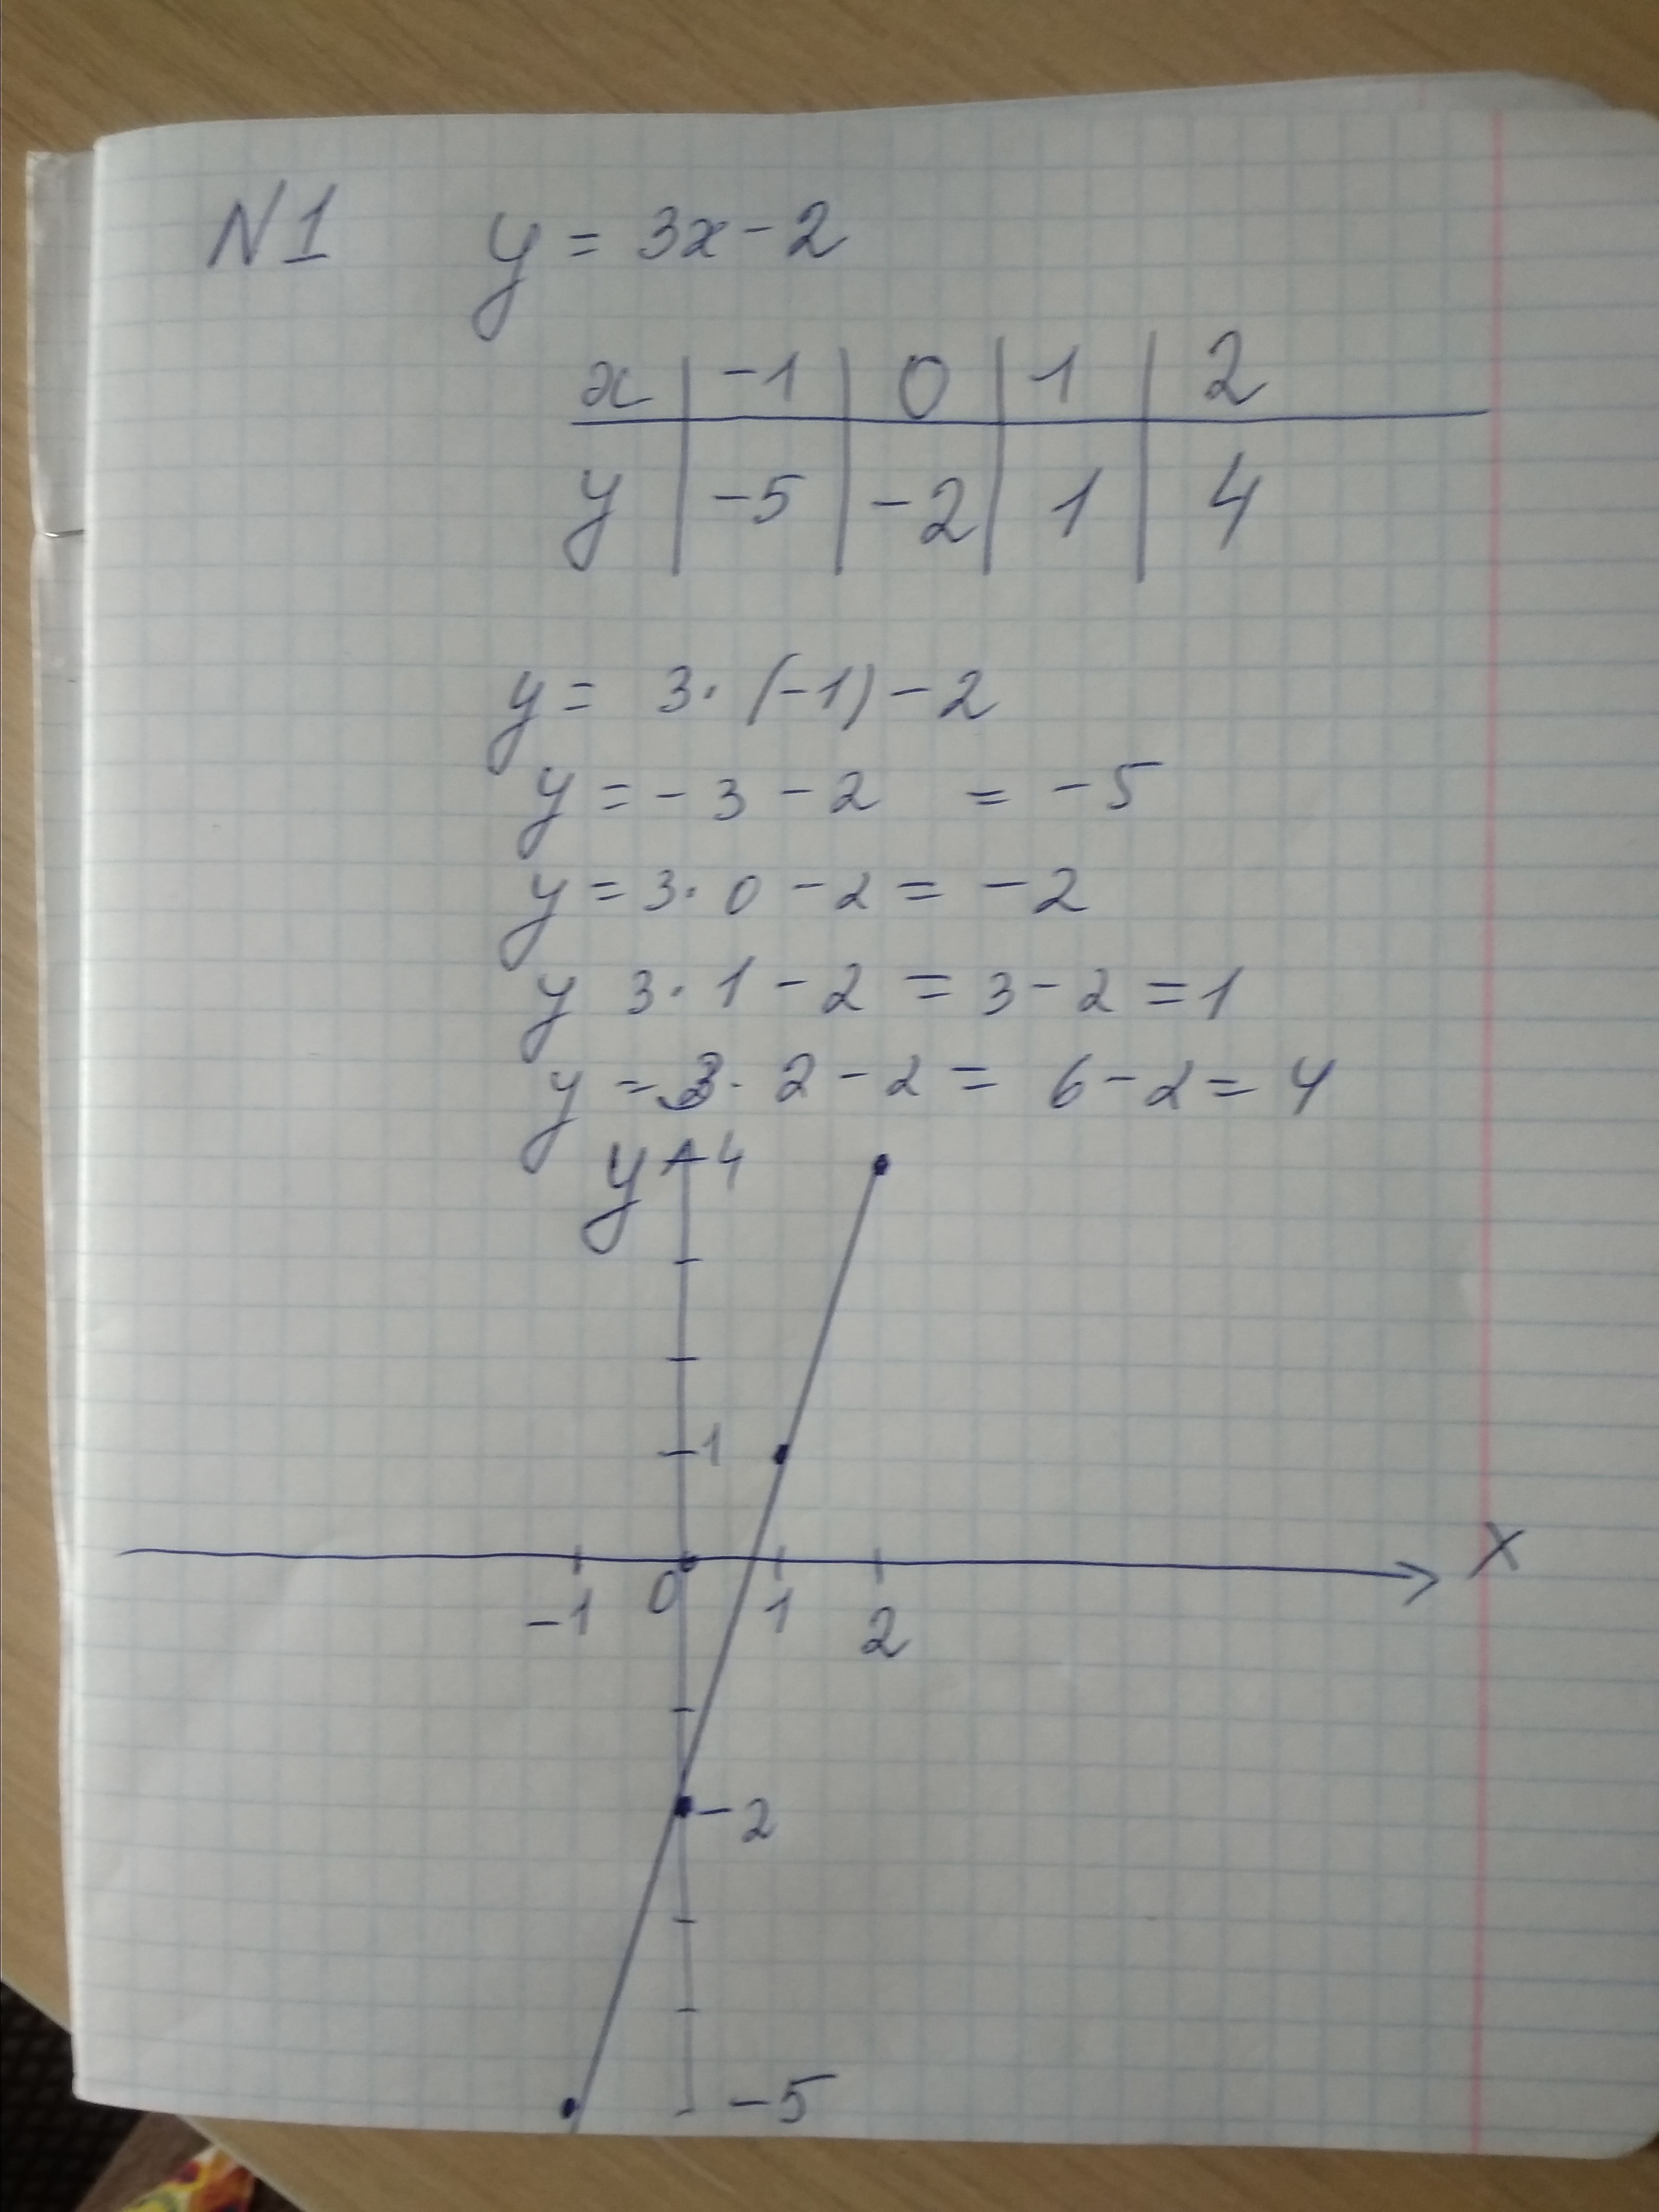 N1 y = 3x - 2
x | -1 | 0 | 1 | 2
y | -5 | -2 | 1 | 4
y = 3 · (-1) - 2
y = - 3 - 2 = - 5
y = 3 · 0 - 2 = - 2
y 3 · 1 - 2 = 3 - 2 = 1
y = 3 · 2 - 2 = 6 - 2 = 4
y 4
1
x
-1 0 1 2
-2
-5